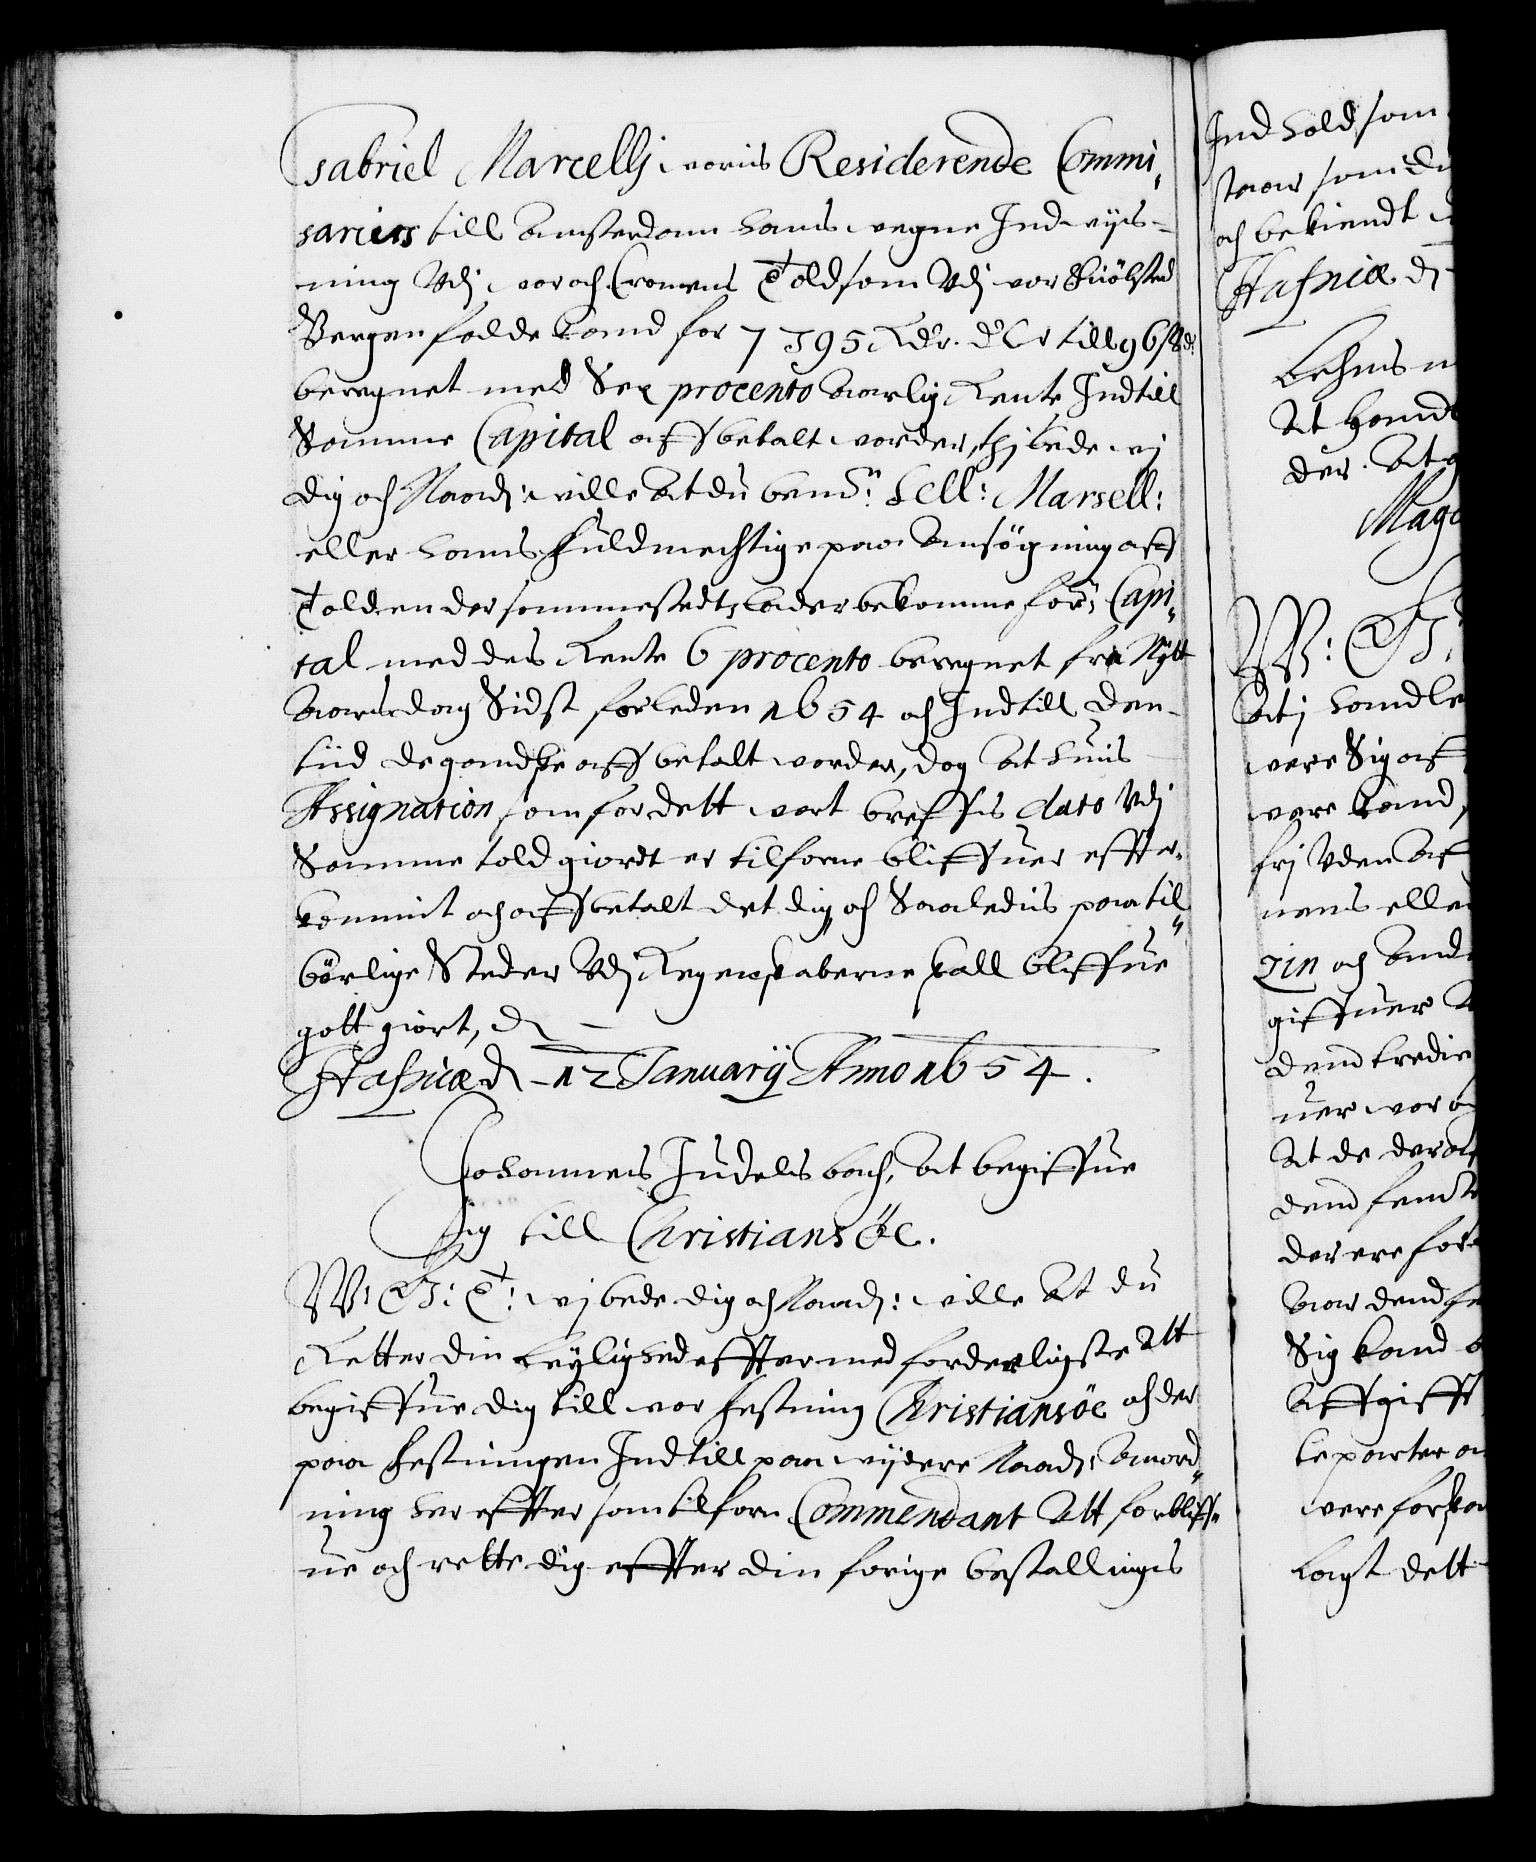 Gabriel Marcelly voris Residerende Commi¬
sarius till Amsterdam hans vegne Indvijs¬
ning Vdj vor och Cronens Told som Vdj vor Kiöbsted
Bergen falde kand for 7395 Rdr. till 96 ß
beregnet med Sex procento aarlig Rente Indtill
Samme Capital aff betalt vorder, thj bede vi
dig och Naad: ville at du bemt: Sell: Marsell:
eller hans fuldmechtige paa ansögning aff
Tolden der sammestedtz lader bekomme for: Capi¬
tal med des Rente 6 procento beregnet fra Nytt
aarsdag Sidst forleden 1654 och Indtill den¬
tiid de gandske aff betalt vorder, dog at huis
Assignation som for dett vort breffs dato Vdj
Samme told giordt er tilforne bliffuer effter¬
kommit och aff betalt det dig och Saaledis paa til¬
börlige Steder Vdj Regenskaberne skall bliffue
gott giort, ec
Hafniæ d. 12 Januarij Anno 1654.
Johannes Judelsbach, at begiffue
sig till Christiansöe.
W: G: T: vj bede dig och Naad: ville At du
Retter din leyglighed effter med forderligste Att
begiffue dig till vor festning Christiansöe och der
paa festningen Indtill paa vijdere Naad: anord¬
ning her effter som tilforn Commendant Att forbliff¬
ue och rette dig effter din forige bestallings
Indhold som
aar som
och bekiendt
Hafniæ d
Lehns
At hand
der. At
Mag
W: G:
At j handle
vere Sig aff
vere kand,
frj Vden
nens elle
zin och And
giffuer
dend tredie
uer vor
At de der aff
dend femte
der ere for
aar dend
Sig kand
Aff gifft
te parter
vere forska
lagt dett